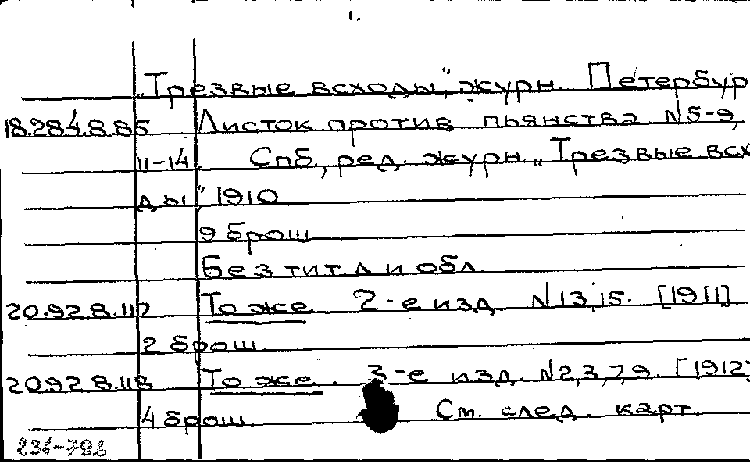 „Трезвые всходы", журн. Петербур
18.284.8.85 Листок против пьянства N5-9,
11-14. Спб., ред. журн. „Трезвые всхо
ды", 1910
9 брош.
Без тит. л. и обл.
20.92.8.117 То же. 2-е изд. N13,15. [1911]
2 брош.
20.92.8.118 То же. 3-е изд. N2,3,7,9. [1912]
4 брош. См. след. карт.